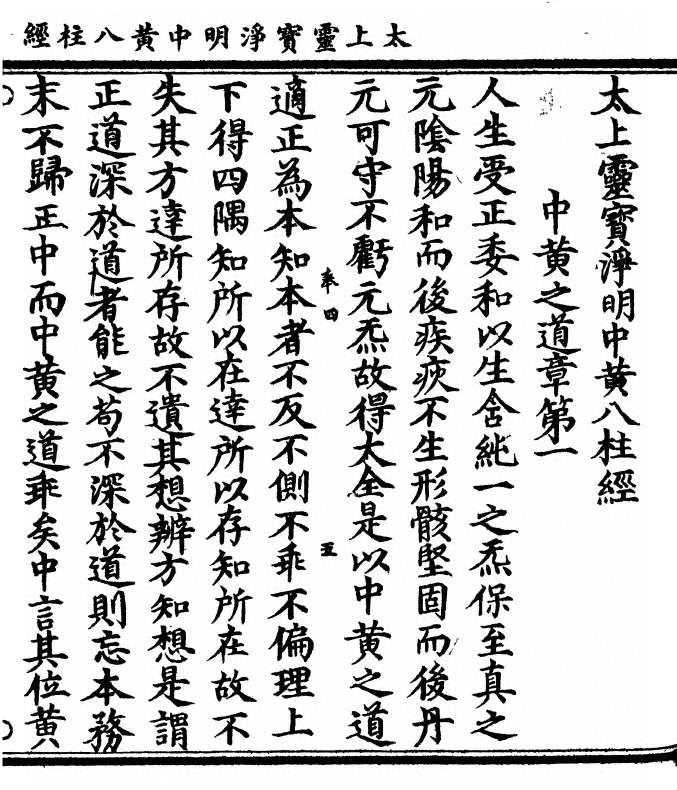 太上靈寶淨明中黃八柱經
太上靈寶淨明中黃八柱經
中黃之道章第一
人生受正委和以生含純一之炁保至真之
元陰陽和而後疾疢不生形骸堅固而後丹
元可守不虧元炁故得大全是以中黃之道
奉四
五
適正為本知本者不反不側不乖不偏理上
下得四隅知所以在達所以存知所在故不
失其方達所存故不遺其想辨方知想是謂
正道深於道者能之苟不深於道則忘本務
末不歸正中而中黃之道乖矣中言其位黃